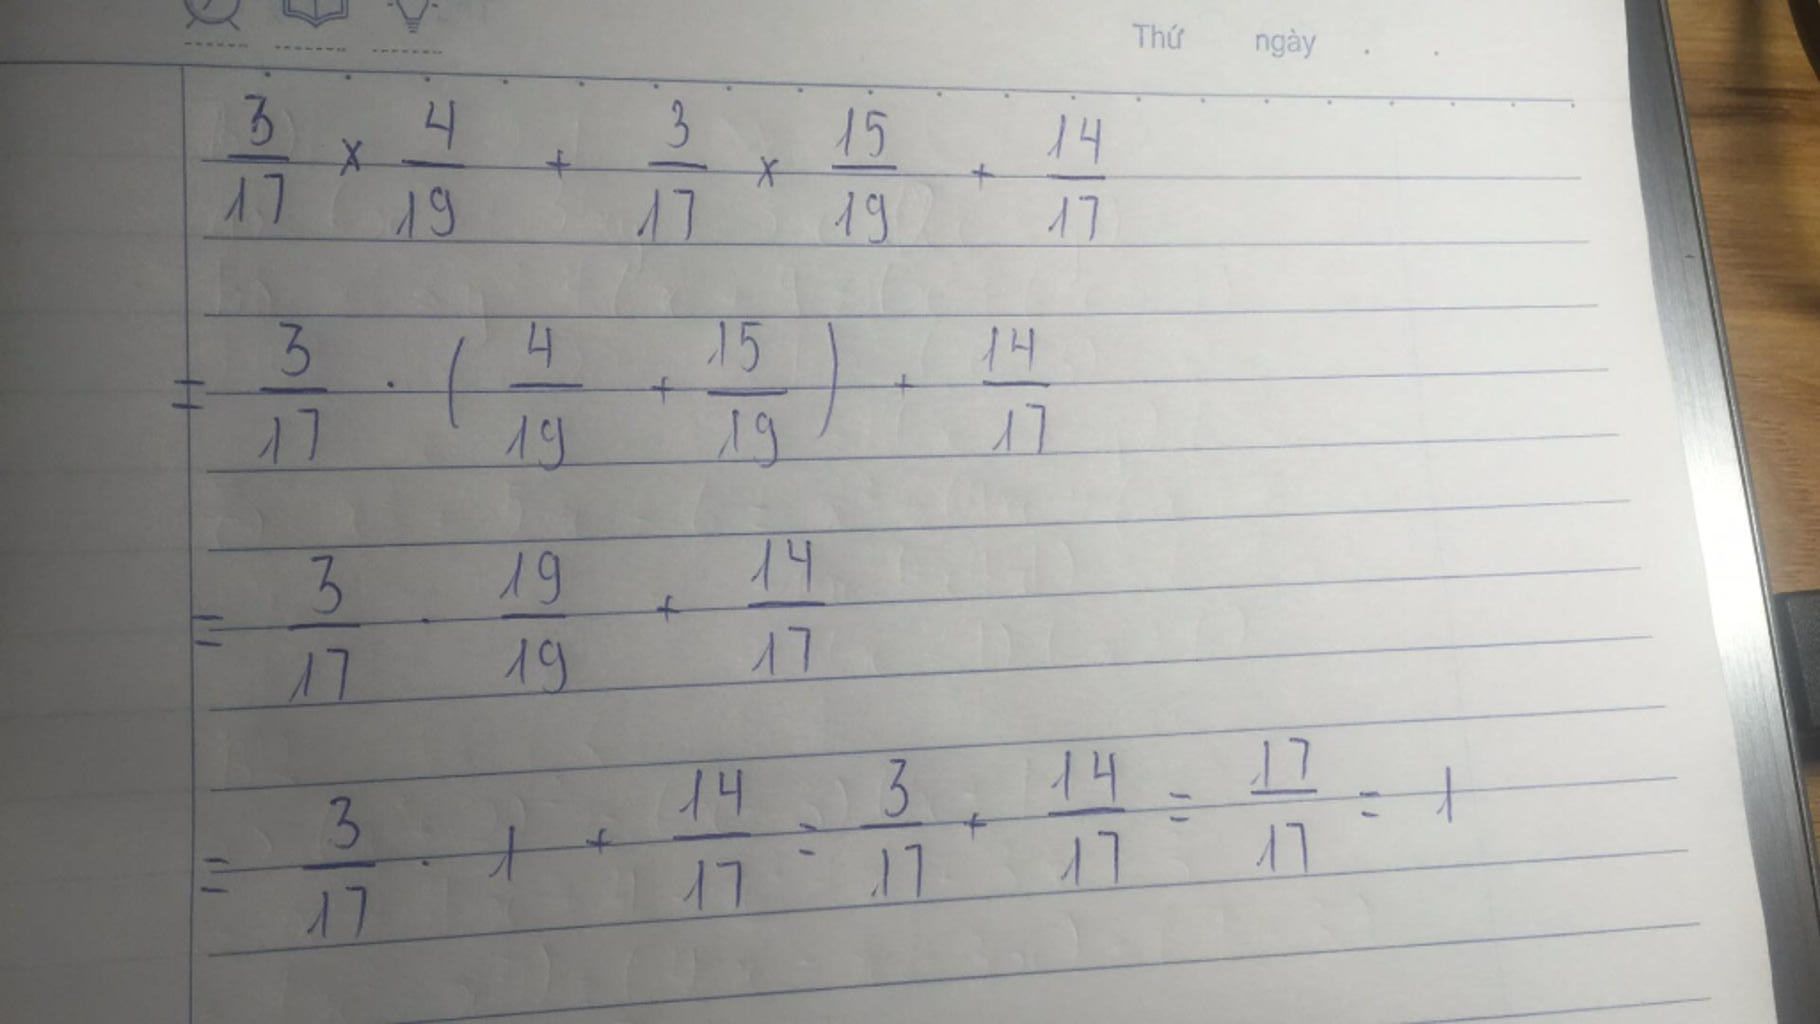 Thứ ngày . .
3/17 × 4/19 + 3/17 × 15/19 + 14/17
= 3/17 . (4/19 + 15/19) + 14/17
= 3/17 . 19/19 + 14/17
= 3/17 . 1 + 14/17 = 3/17 + 14/17 = 17/17 = 1